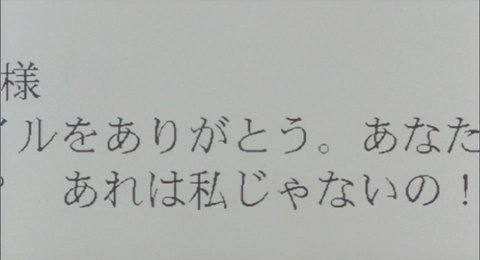 様
ルをありがとう。あなた
あれは私じゃないの！